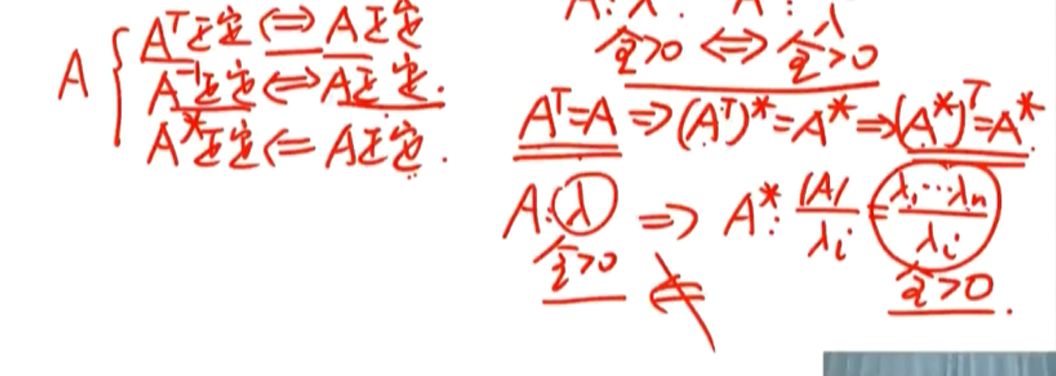 A { A^T正定 ⟺ A正定
A^{-1}正定 ⟺ A正定.
A^*正定 ⟸ A正定.
全>0 ⟺ 全>0
A^T=A ⟹ (A^T)^*=A^* ⟹ (A^*)^T=A^*
A:λ ⟹ A^*: |A|/λ_i = λ_1…λ_n/λ_i
全>0 ⟸ 全>0.